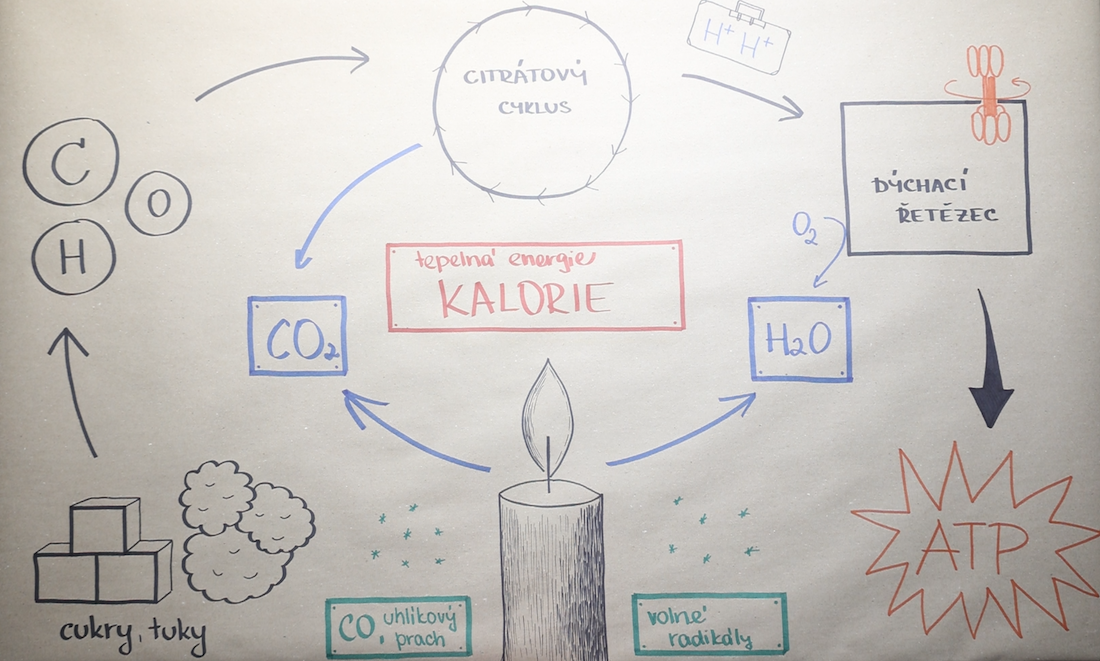 CITRÁTOVÝ
CYKLUS
H⁺ H⁺
C
O
H
DÝCHACÍ
ŘETĚZEC
O₂
tepelná energie
KALORIE
CO₂
H₂O
ATP
cukry, tuky
CO, uhlíkový
prach
volné
radikály